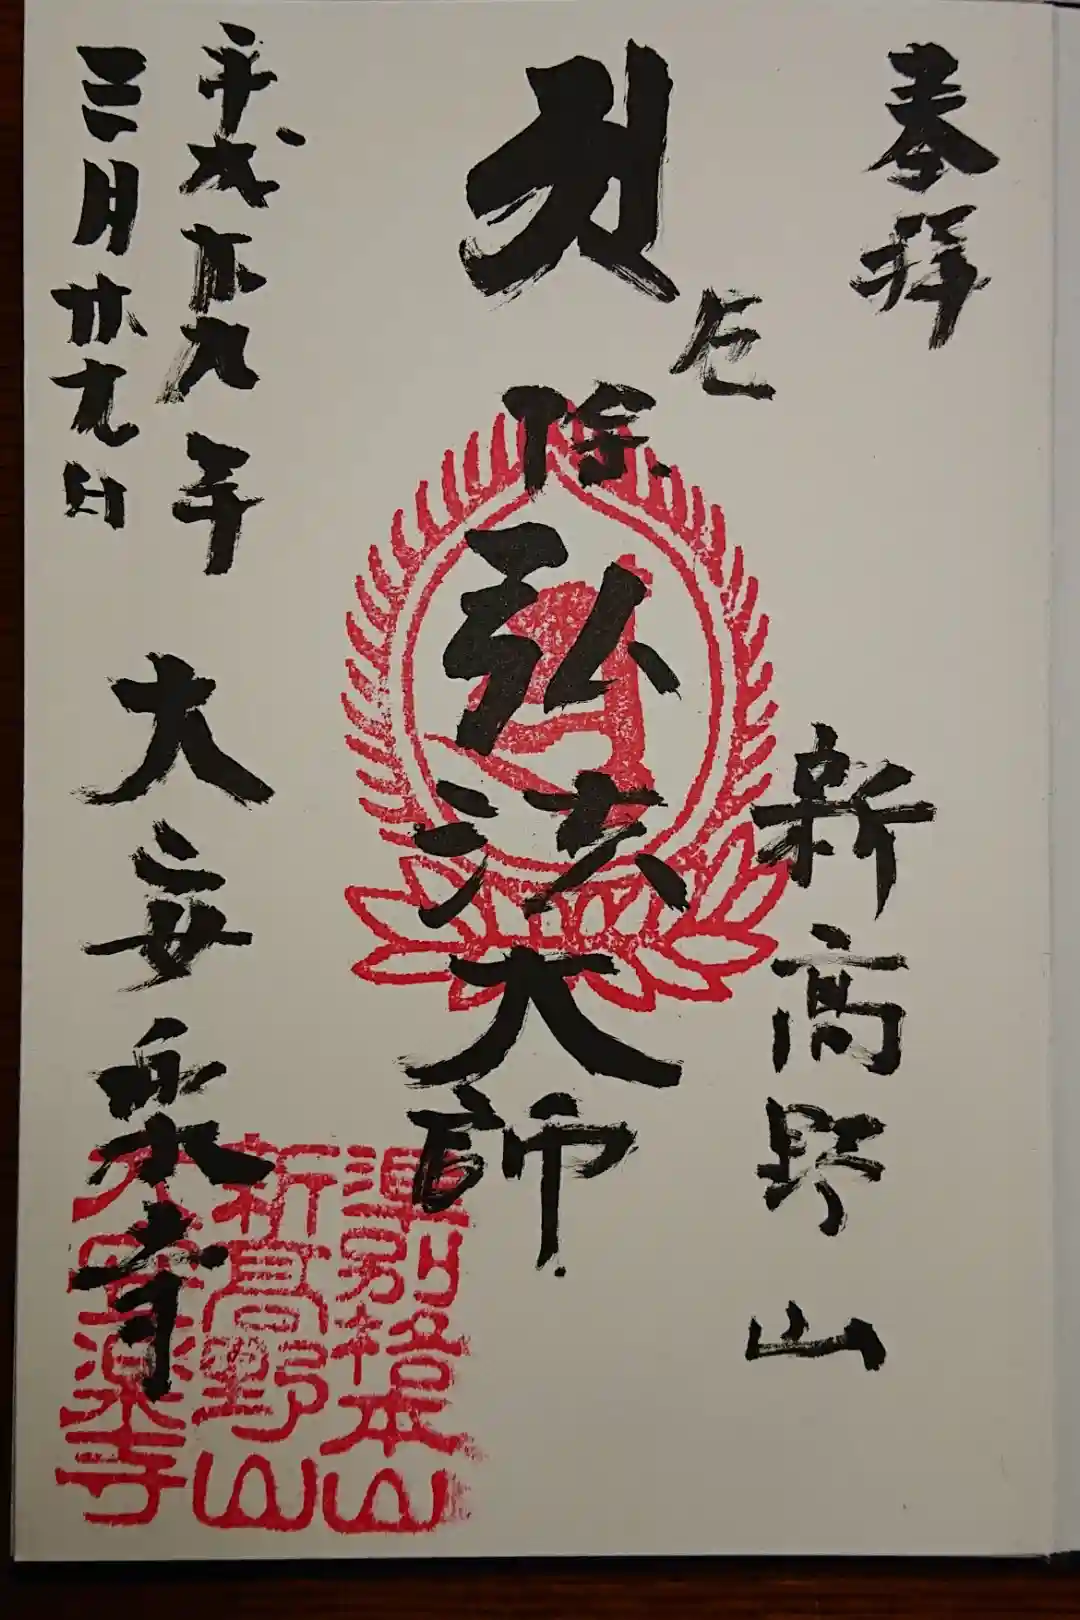 奉拝
新高野山
厄除
弘法大師
平成廿九年
三月廿九日
大安楽寺
準別格本山
新高野山
大安楽寺